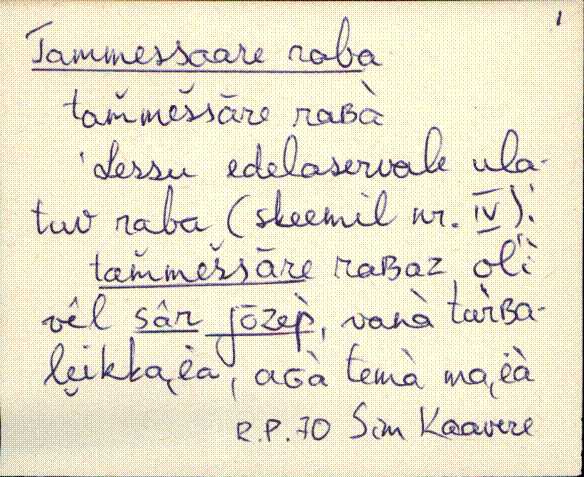 1
Tammessaare raba
tam̆mešsāre raʙà
Lessu edelaservale ula-
tuv raba (skeemil nr. IV).
tam̆mešsāre raʙaz oĺi
vêl sâr jōzep̀, vanà tur̀ʙa-
lęikkajɛ̀a, aɢà temà majɛ̀à
R.P. 70 Sim Kaavere